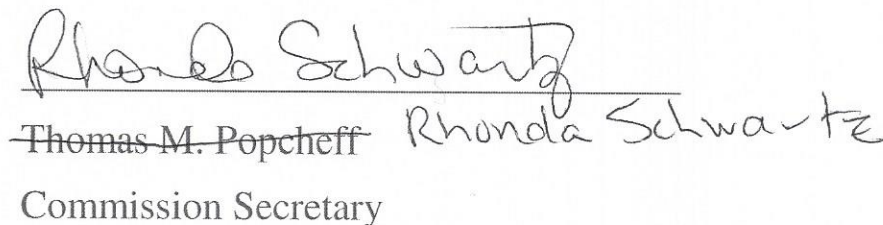 Rhonda Schwartz
Thomas M. Popcheff Rhonda Schwartz
Commission Secretary